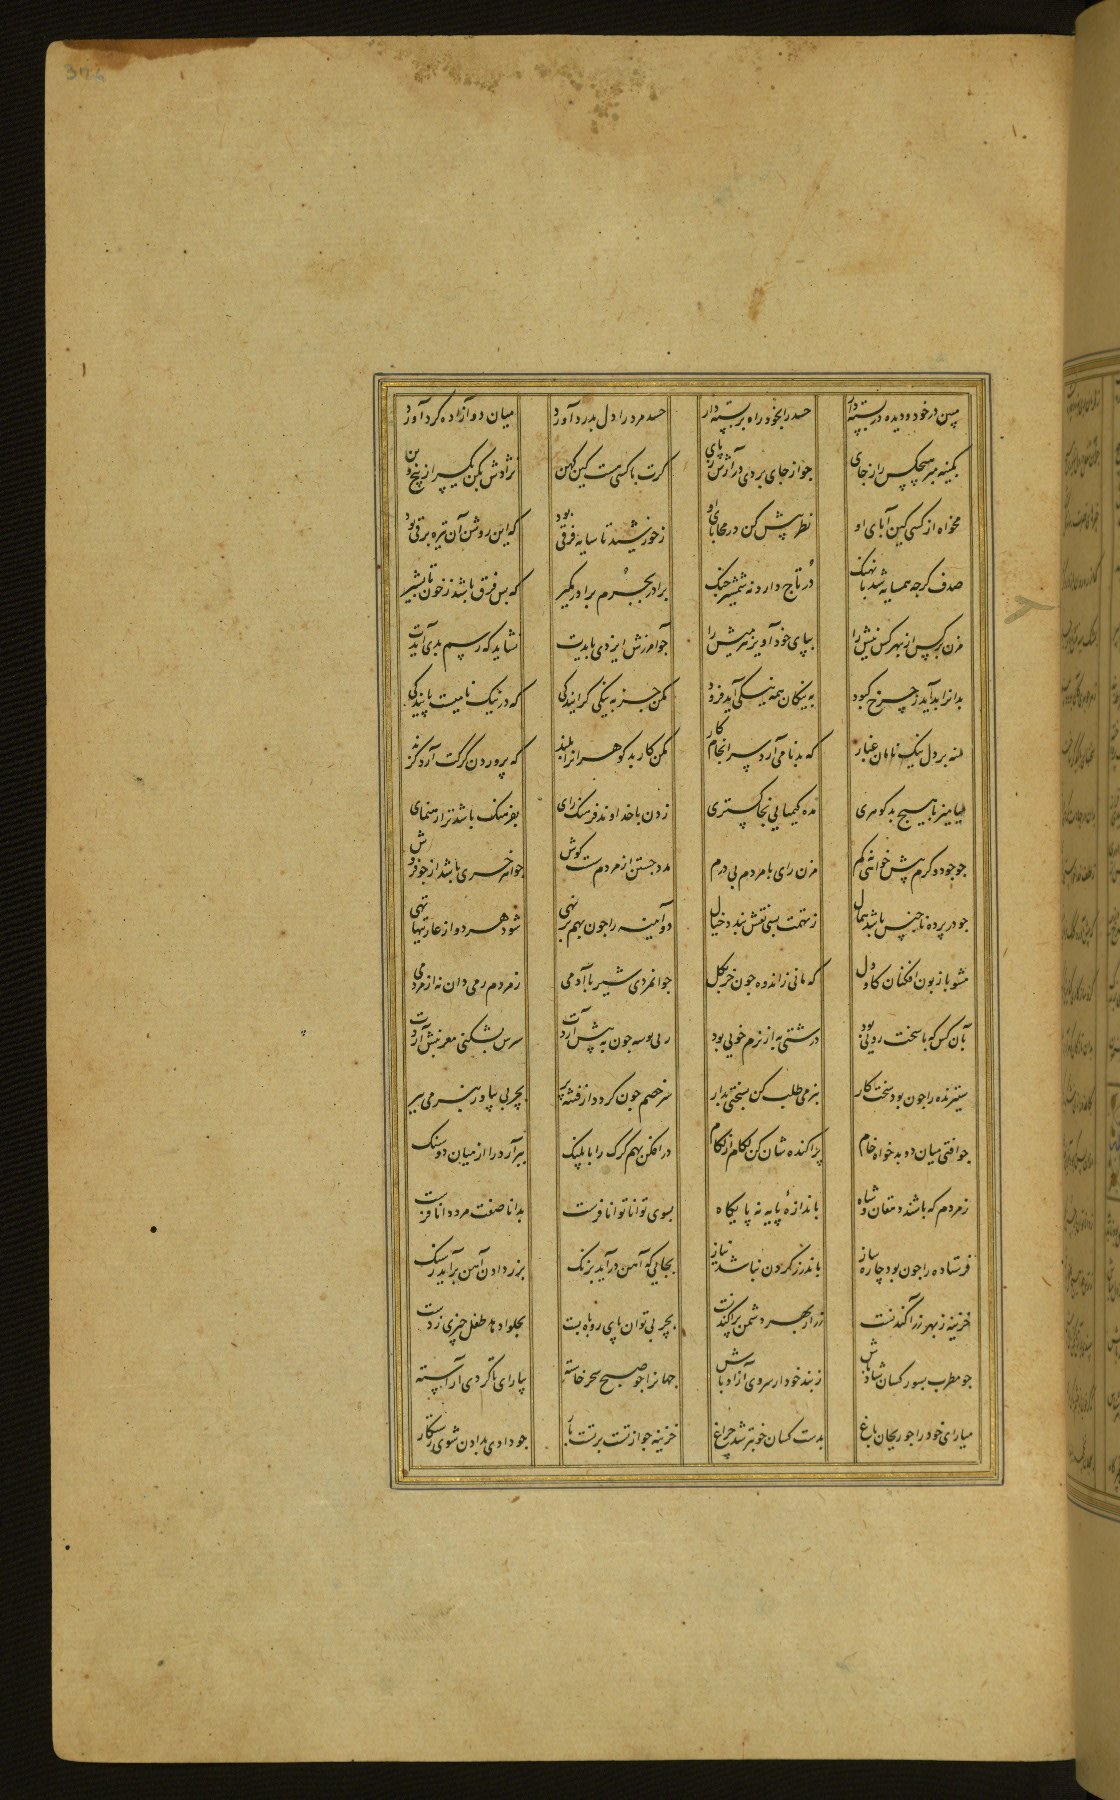 مبین در خود و دیده در بسته دار حسد را بخود راه بر بسته دار حسد مرد را دل بدرد آورد میان دو آزاده کرد آورد
بکینه مبر هیچکس را ز جای جو از جای بردی در آرش ز پای کرت با کسی هست کین کهن نژادش مکن یکسر از بیخ و بن
مخواه از کسی کین آبای او نظر پیش کن در محابای او ز خورشید تا سایه فرقی بود که این روشن آن تیره برقی بود
صدف کرجه همسایه شد با نهنک در تاج دارد نه شمشیر جنک برادر بجرم برادر مکیر که بس فرق باشد ز خون تا بشیر
مزن بر کس از بهر کس نیش را بپای خود آویز هر میش را جو آمرزش ایزدی بایدت نشاید که رسم بدی آیدت
بدانرا بد آید ز جرخ کبود به نیکان همه نیکی آید فرود مکن جز به نیکی کرایندکی که در نیک نامیست پایندکی
منه بر دل نیک نامان غبار که بدنامی آرد سرانجام کار مکن کار بد کوهرانرا بلند که پروردن کرکت آرد کزند
میامیز با هیج بد کوهری مده کیمیایی بخاکستری زدن با خداوند فرهنک رای بفرهنک باشد ترا رهنمای
جو جود و کرم پیش خواهی کم مزن رای با مردم بی درم مدد جستن از مردم سست کوش جواهر خری باشد از جو فروش
جو در پرده ناجنس باشد همال ز تهمت بسی نقش بندد خیال دو آیینه را جون بهم بر نهی شود هر دو از عاریتها تهی
مشو با زبون افکنان کاو دل که مانی ز اندوه جون خر بکل جوانمردی شیر با آدمی ز مردم رمی دان نه از مردمی
بآن کس که با سخت رویی بود درشتی به از نرم خویی بود لبی بوسه جون به پیش آردت سرش بشکنی مغز نیش آردت
ستیزنده را جون بود سخت کار بنرمی طلب کن بسختی بدار سر خصم جون کردد از فتنه پر بجربی بیاور بنرمی ببر
جو افتی میان دو بدخواه خام پراکنده شان کن لکام از لکام در افکن بهم کرک را با پلنک بر آر آرد را از میان دو سنک
ز مردم که باشند دهقان و شاه باندازهٔ پایه نه پایکاه بسوی توانا توانا فرست بدانا صفت مرد دانا فرست
فرستاده را جون بود چاره ساز باندرز کردن نباشد نیاز بجایی که آهن در آید بزنک بزر دادن آهن بر آید ز سنک
خزینه ز بهر زر آکندنست زر از بهر دشمن پراکندنست بجربی توان پای روباه بست بحلوا دهد طفل چیزی ز دست
جو مطرب بسور کسان شاد باش ز بند خود ار سروی آزاد باش جهانرا جو صبح سحر خاسته بیارای تا کردی آراسته
میارای خود را جو ریحان باغ بدست کسان خوبتر شد چراغ خزینه جو از تست بر تست بار جو دادی بدادن شوی رستکار